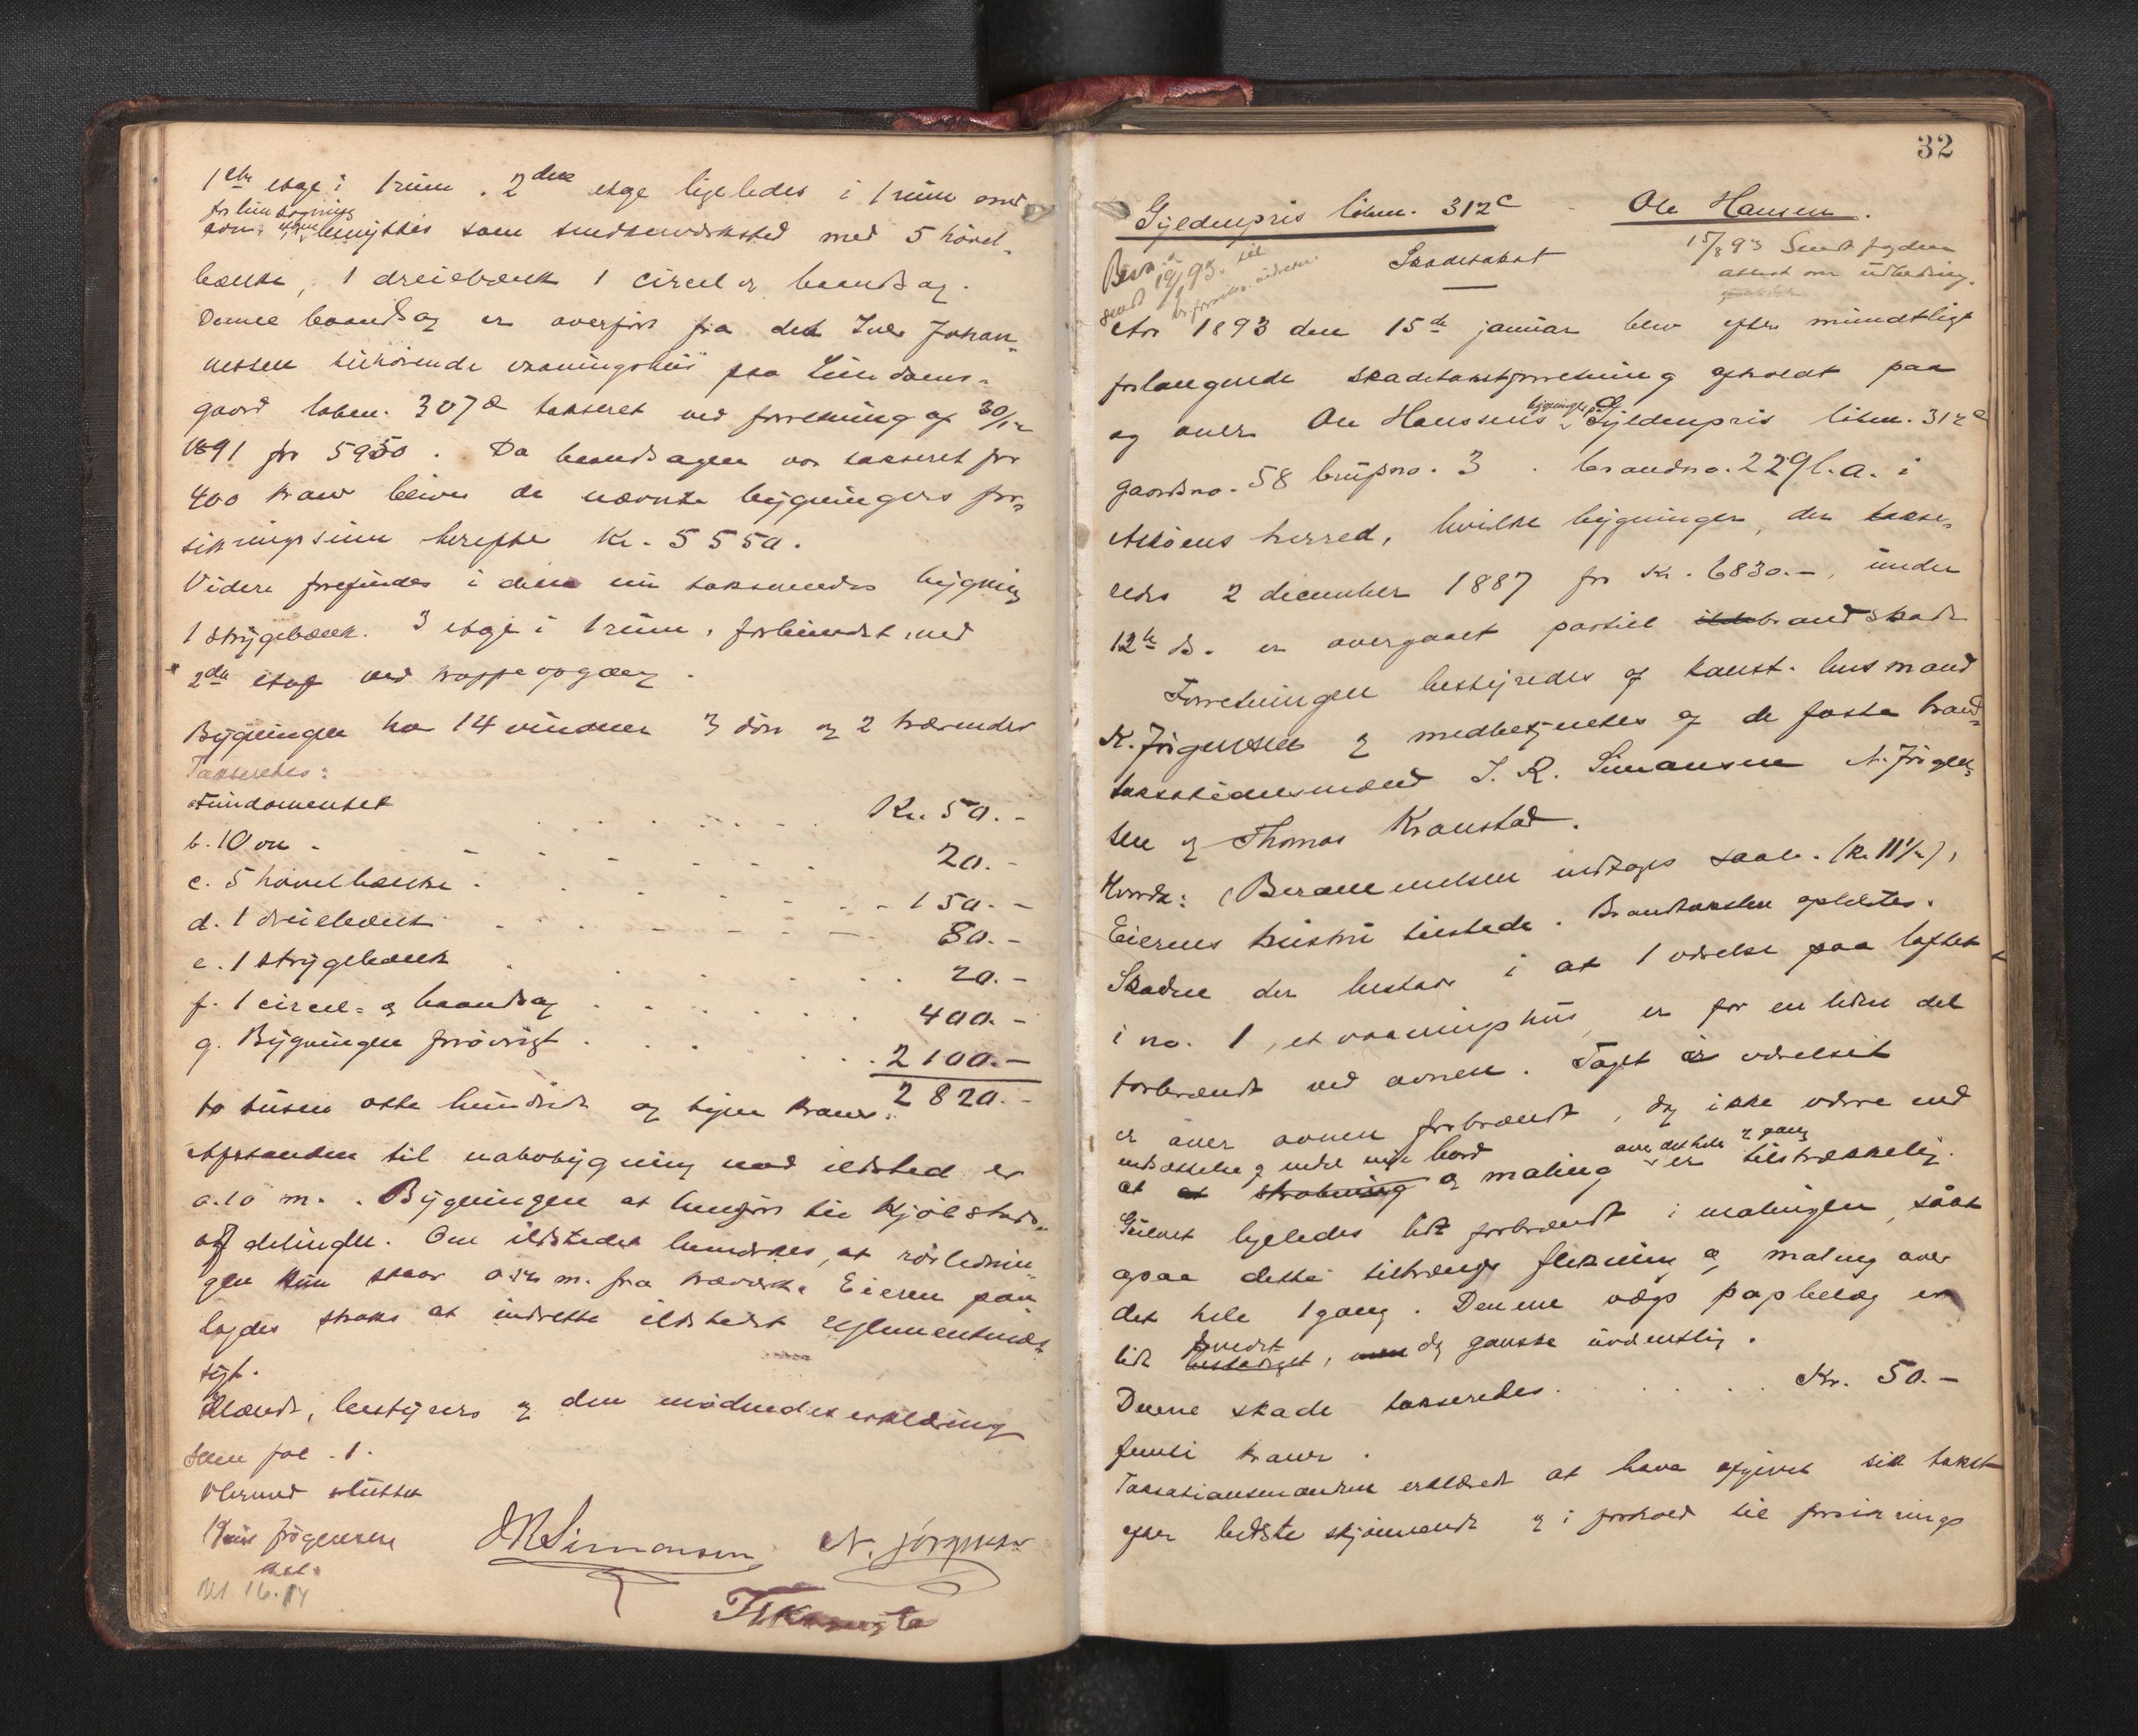 1ste etage i 1 rum. 2den etage ligeledes i 1 rum med
for limkogning
ovn, benyttes som snedkerværksted med 5 hövel-
bænke, 1 dreiebænk 1 circel og baandsag.
Denne baandsag er overført fra det Iver Johan-
nessen tilhørende vaaningshus paa
gaard løben. 307a takseret ved forretning af 30/12
1891 for 5950. Da baandsagen var takseret for
400 kroner bliver de nævnte bygningers for-
sikringssum herefter Kr. 5550.
Videre forefindes i den nu takserendes bygning
1 strygebænk. 3 etage i 1 rum, forbundet med
2den etage ved trappeopgang.
Bygningen har 14 vinduer 3 döre og 2
Takseredes:
a Fundamentet Kr. 50.-
b. 1 Ovn 20.-
c. 5 hövelbænke 150.-
d. 1 dreiebænk 80.-
e. 1 strygebænk 20.-
f. 1 circel- og baandsag 400.-
g. Bygningen forövrigt 2100.-
to tusen otte hundrede og tyve kroner. 2820.-
Afstanden til nabobygning med ildsted er
a. 10 m. Bygningen at henføre til Kjöbstads-
afdelingen. Om ildstedet bemærkes, at rörlednin-
gen kun staar m. fra træværk. Eieren paa-
lagdes straks at indrette ildstedet reglementmæs-
sigt.
Mænds, bestyrers og den mödendes erklæring
som fol. 1.
Hermed sluttet
Jörgensen
kst.
Bet. 16.14
JRSimonsen N. Jörgensen
ThKronstad
32
Gyldenpris löben. 312c - Ole Hansen.
15/8 93 Sendt fogden
attest om udbedring.
Skadetakst
Besk. sendt 19/1 93. til
Aar 1893 den 15de januar blev efter mundtligt
forlangende skadetakstforretning afholdt paa
bygninger paa
og over Ole Hanssens Gyldenpris löben. 312c
gaardsno. 58 brugsno. 3. brandno. 229 l. a. i
Askøens herred, hvilke bygninger, der takse-
redes 2 december 1887 for Kr. 6830.-, under
12te ds. er overgaaet partiel brandskade
Forretningen bestyredes af konst. lensmand
K. Jörgensen og medbetjentes af de faste brand-
takstationsmænd J. R. Simonsen N. Jörgen-
sen og Thomas Kronstad.
Hvorda: (Berammelsen indtages saal. (Kr. 11 1/2),
Eierens hustru tilstede. Brandtaksten oplæstes.
Skaden der bestaar i at 1 værelse paa loftet
i no. 1, et vaaningshus, er for en liden del
forbrændt ved ovnen. Taget i værelset
er over ovnen forbrændt, dog ikke værre end
indsættelse af endel nye bord over det hele 2 gang
at at skrabning og maling er tilstrækkelig.
Gulvet ligeledes lidt forbrændt i malingen, saat
ogsaa dette tiltrænger flikning og maling over
det hele 1 gang. Denne vægs papbelæg er
svedet
lidt beskadiget, men dog ganske uvæsentlig.
Denne skade takseredes Kr. 50.-
femti kroner.
Taksationsmændene erklærede at have afgivet sin takst
efter bedste skjönnende og i forhold til forsikrings